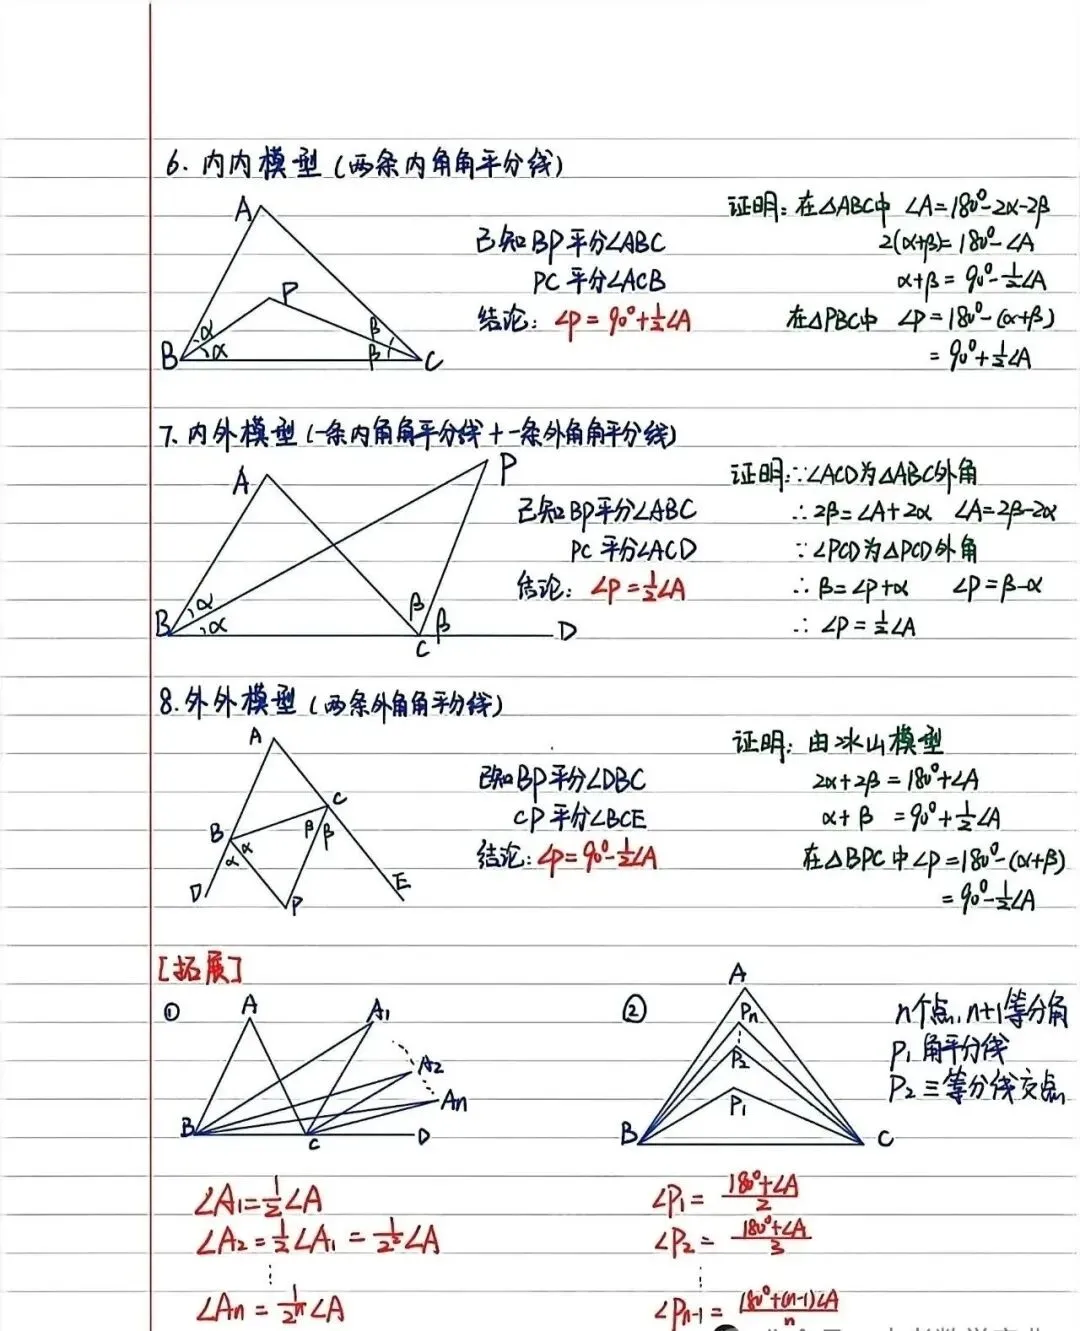 6. 内内模型(两条内角角平分线)
A
P
α
α
β
β
B
C
已知BP平分∠ABC
PC平分∠ACB
结论: ∠P=90°+½∠A
证明: 在△ABC中 ∠A=180°-2α-2β
2(α+β)=180°-∠A
α+β=90°-½∠A
在△PBC中 ∠P=180°-(α+β)
=90°+½∠A
7. 内外模型(一条内角角平分线+一条外角角平分线)
A
P
α
α
β
β
B
C
D
已知BP平分∠ABC
PC平分∠ACD
结论: ∠P=½∠A
证明:∵∠ACD为△ABC外角
∴2β=∠A+2α ∠A=2β-2α
∵∠PCD为△PCD外角
∴β=∠P+α ∠P=β-α
∴∠P=½∠A
8. 外外模型(两条外角角平分线)
A
C
B
β
β
α
α
D
P
E
已知BP平分∠DBC
CP平分∠BCE
结论: ∠P=90°-½∠A
证明: 由冰山模型
2α+2β=180°+∠A
α+β=90°+½∠A
在△BPC中∠P=180°-(α+β)
=90°-½∠A
[拓展]
①
A
A₁
A₂
An
B
C
D
∠A₁=½∠A
∠A₂=½∠A₁=1/2²∠A
⋮
∠An=1/2ⁿ∠A
②
A
Pn
P₂
P₁
B
C
n个点,n+1等分角
P₁角平分线
P₂三等分线交点
∠P₁=(180°+∠A)/2
∠P₂=(180°+∠A)/3
⋮
∠Pn-1=(180°+(n-1)∠A)/n